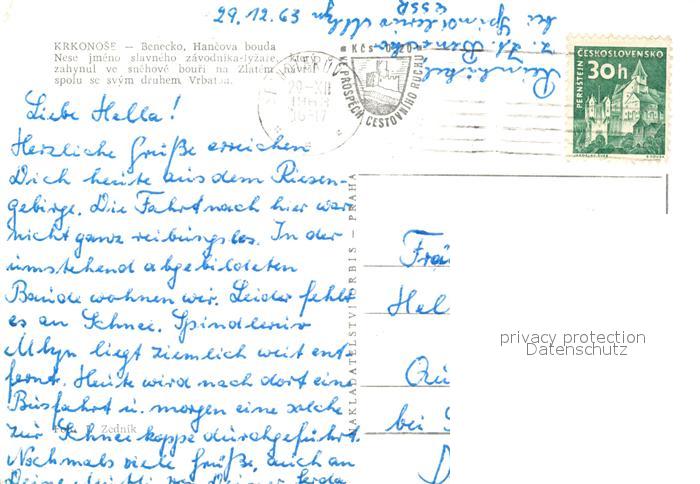 29.12.63
bei Spindleruv Mlyn
ČSSR
KRKONOŠE — Benecko, Hančova bouda
Nese jméno slavného závodníka-lyžaře, který
zahynul ve sněhové bouři na Zlatém návrší
spolu se svým druhem, Vrbatou.
Kčs 0,20
VE PROSPĚCH CESTOVNÍHO RUCHU
29.XII
1963
16-17
ČESKOSLOVENSKO
PERNŠTEJN
30h
Liebe Hella!
Herzliche Grüße erreichen
Dich heute aus dem Riesen-
gebirge. Die Fahrt nach hier war
nicht ganz reibungslos. In der
umstehend abgebildeten
Baude wohnen wir. Leider fehlt
es an Schnee. Spindleruv
Mlyn liegt ziemlich weit ent-
fernt. Heute wird nach dort eine
Busfahrt u. morgen eine solche
zur Schneekoppe durchgeführt.
Zedník
Nochmals viele Grüße, auch an
Deine
NAKLADATELSTVÍ ORBIS — PRAHA
Frä
Hel
bei
privacy protection
Datenschutz